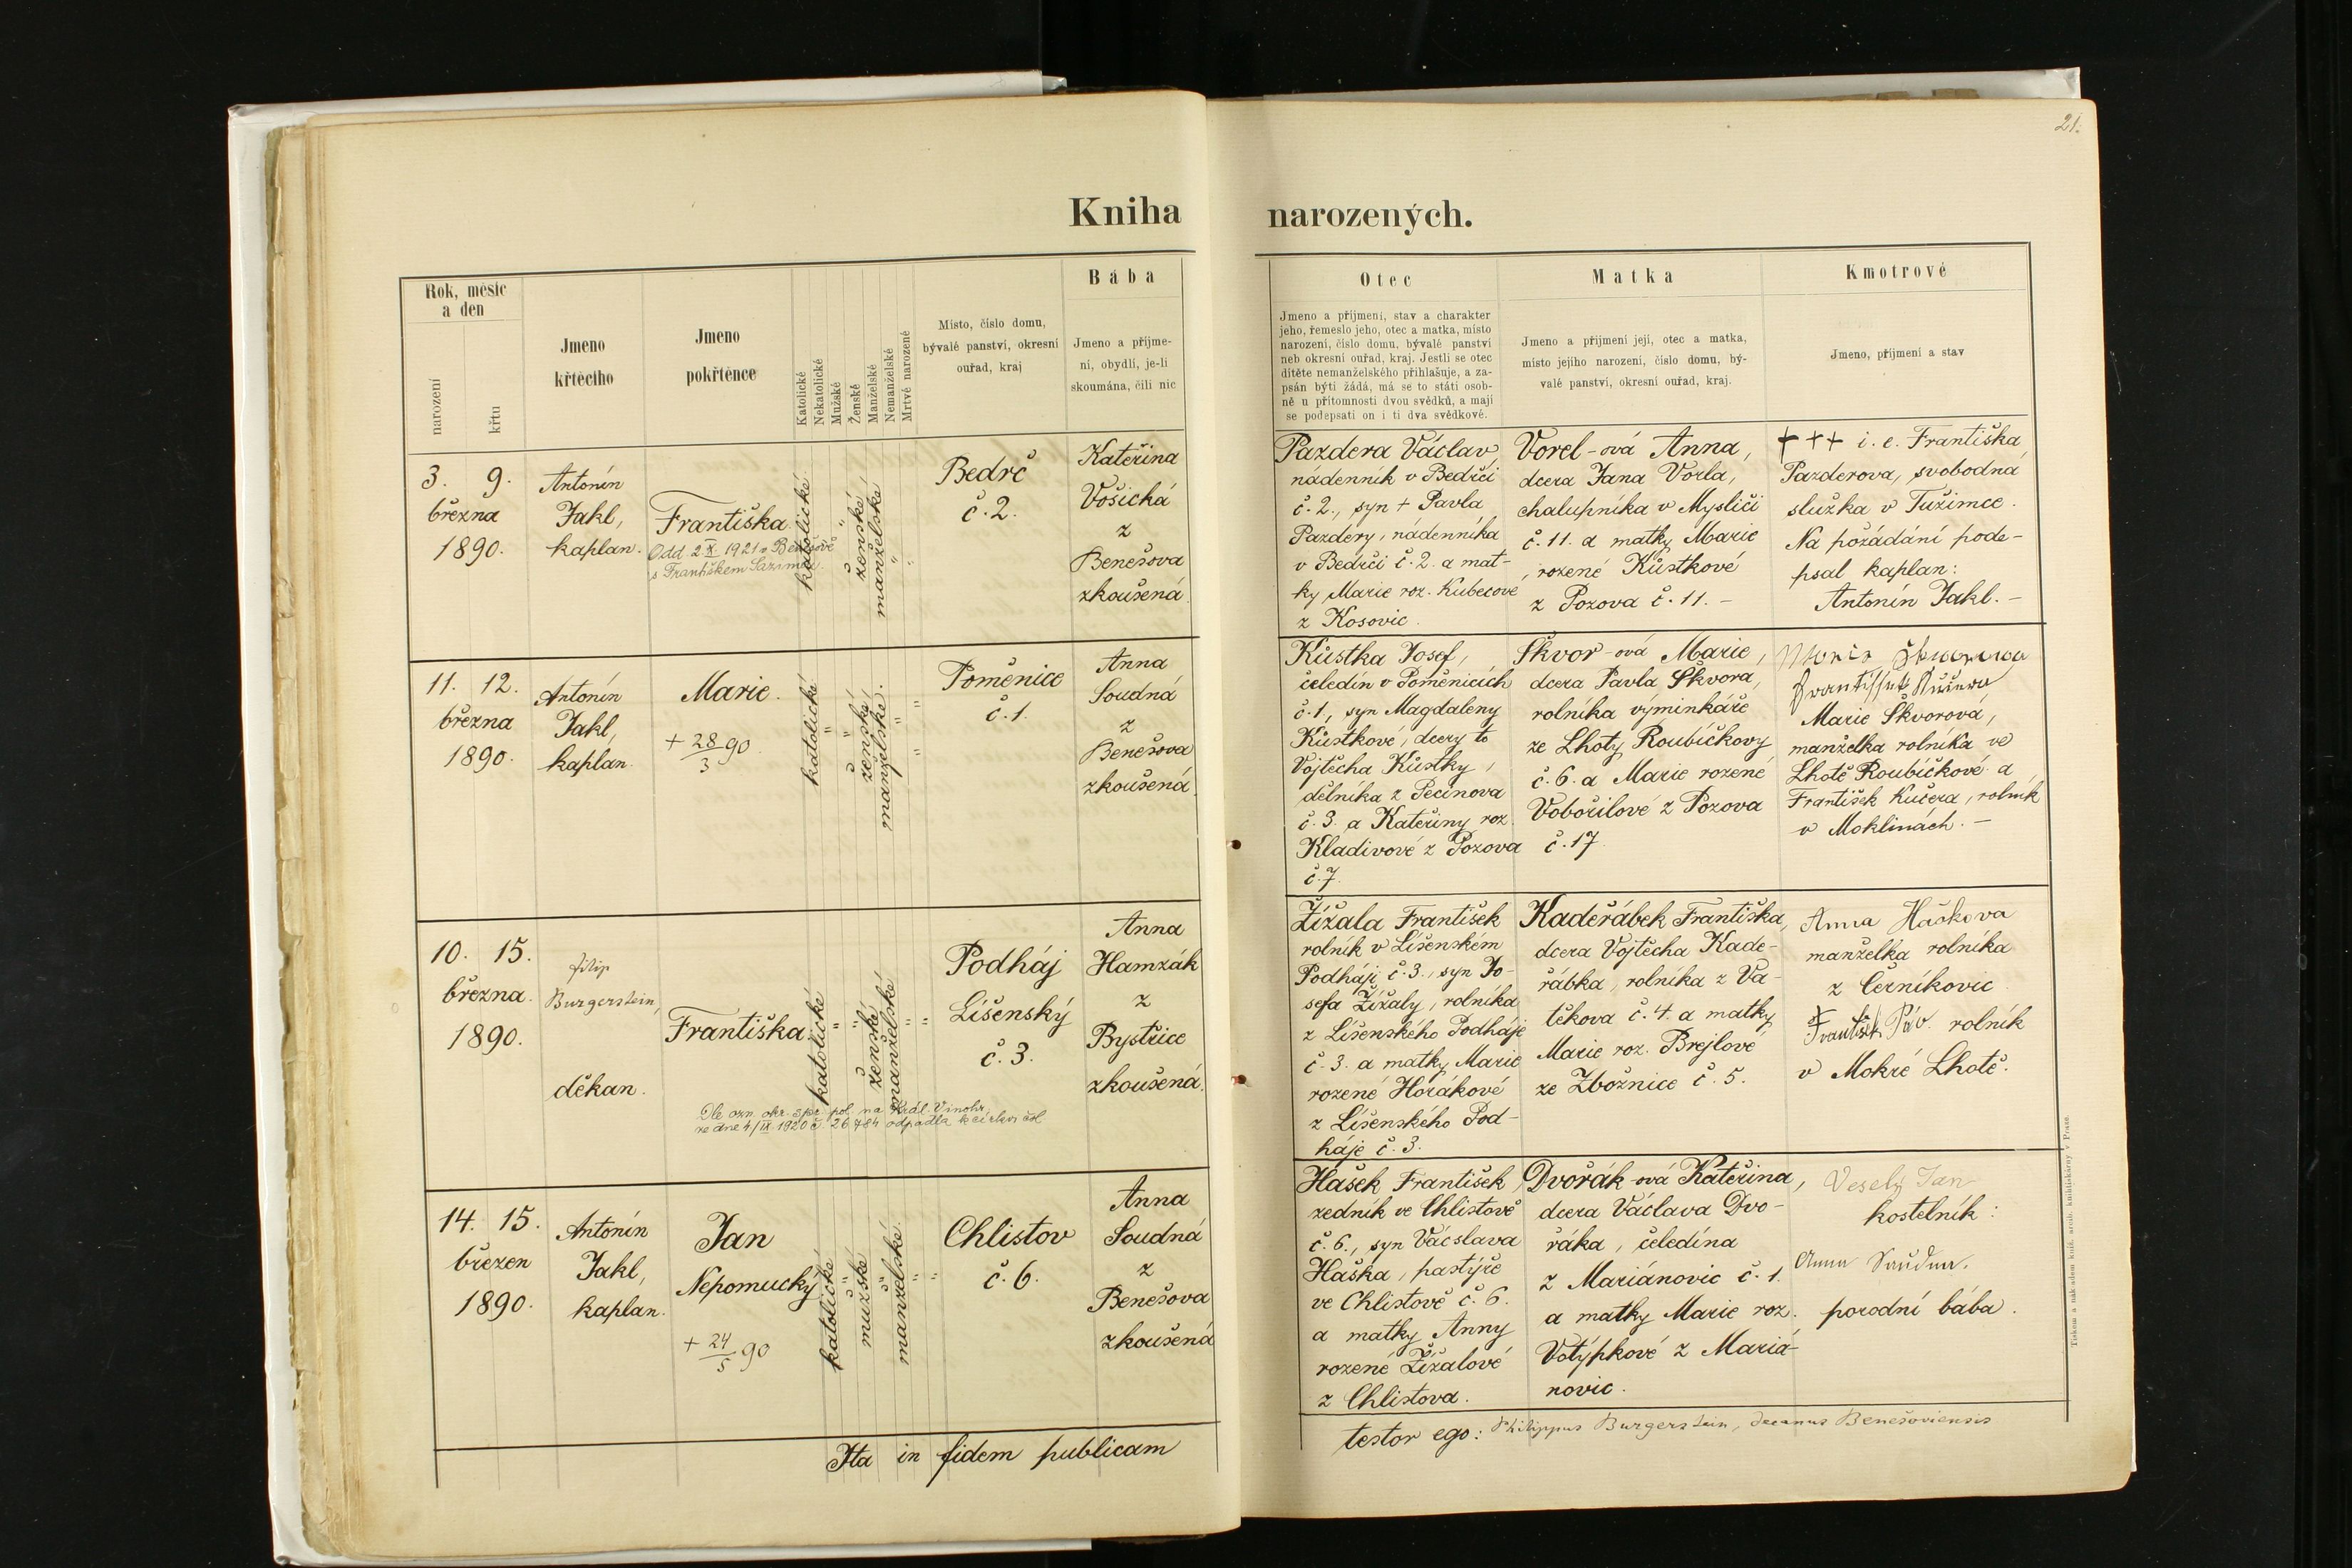 21.
Kniha narozených.
Rok, měsíc
a den
narození
křtu
Jmeno
křtěcího
Jmeno
pokřtěnce
Katolické
Nekatolické
Mužské
Ženské
Manželské
Nemanželské
Mrtvě narozené
Místo, číslo domu,
bývalé panství, okresní
ouřad, kraj
Bába
Jmeno a příjme-
ní, obydlí, je-li
skoumána, čili nic
Otec
Jmeno a příjmení, stav a charakter
jeho, řemeslo jeho, otec a matka, místo
narození, číslo domu, bývalé panství
neb okresní ouřad, kraj. Jestli se otec
dítěte nemanželského přihlašuje, a za-
psán býti žádá, má se to státi osob-
ně u přítomnosti dvou svědků, a mají
se podepsati on i ti dva svědkové.
Matka
Jmeno a příjmení její, otec a matka,
místo jejího narození, číslo domu, bý-
valé panství, okresní ouřad, kraj.
Kmotrové
Jmeno, příjmení a stav
3. 9.
března
1890.
Antonín
Jakl,
kaplan.
Františka.
Odd 2 X 1921 v Benešově
s Františkem
katolické
ženské
manželské
Bedrč
č. 2.
Kateřina
Vošická
z
Benešova
zkoušená.
Pazdera Václav,
nádenník v Bedrči
č. 2., syn + Pavla
Pazdery, nádenníka
v Bedrči č. 2. a mat-
ky Marie roz. Kubecové
z Kosovic.
Vorel-ová Anna,
dcera Jana Vorla,
chalupníka v Mysliči
č. 11. a matky Marie
rozené Kůstkové
z Pozova č. 11. -
+++ i. e. Františka
Pazderova, svobodná
služka v Tužimce.
Na požádání pode-
psal kaplan:
Antonín Jakl. -
11. 12.
března
1890.
Antonín
Jakl,
kaplan.
Marie.
+ 28/3 90.
katolické
ženské
manželské.
Poměnice
č. 1.
Anna
Soudná
z
Benešova
zkoušená.
Kůstka Josef,
čeledín v Poměnicích
č. 1, syn Magdaleny
Kůstkové, dcery to
Vojtěcha Kůstky,
dělníka z Pecínova
č. 3. a Kateřiny roz.
Kladivové z Pozova
č. 7.
Škvor-ová Marie,
dcera Pavla Škvora,
rolníka výminkáře
ze Lhoty Roubíčkovy
č. 6. a Marie rozené
Vobořilové z Pozova
č. 17.
Marie Škvorová,
manželka rolníka ve
Lhotě Roubíčkově a
František Kučera, rolník
v Moklinách. -
10. 15.
března.
1890.
filip
Burgerstein,
děkan.
Františka.
Dle ozn. okr. spr. pol. na Král. Vinohr.
ze dne 4/IX 1920 č. 26784 odpadla k církvi čsl
katolické
ženské
manželské
Podháj
Líšenský
č. 3.
Anna
Hamzák
z
Bystřice
zkoušená.
Žížala František
rolník v Líšenském
Podháji č. 3., syn Jo-
sefa Žížaly, rolníka
z Líšenského Podháje
č. 3. a matky Marie
rozené Horákové
z Líšenského Pod-
háje č. 3.
Kadeřábek Františka,
dcera Vojtěcha Kade-
řábka, rolníka z Va-
těkova č. 4. a matky
Marie roz. Brejlové
ze Zbožnice č. 5.
Anna Haškova
manželka rolníka
z Černíkovic
František Pův. rolník
v Mokré Lhotě.
14. 15.
březen
1890.
Antonín
Jakl,
kaplan.
Jan
Nepomucký
+ 24/5 90
katolické
mužské
manželské.
Chlistov
č. 6.
Anna
Soudná
z
Benešova
zkoušená
Hašek František,
zedník ve Chlistově
č. 6., syn Václava
Haška, pastýře
ve Chlistově č. 6.
a matky Anny
rozené Žížalové
z Chlistova.
Dvořák-ová Kateřina,
dcera Václava Dvo-
řáka, čeledína
z Mariánovic č. 1.
a matky Marie roz.
Votýpkové z Mariá-
novic.
Veselý Jan
kostelník:
Anna Saudna.
porodní bába.
Ita in fidem publicam
testor ego: Philippus Burgerstein, decanus Benešoviensis